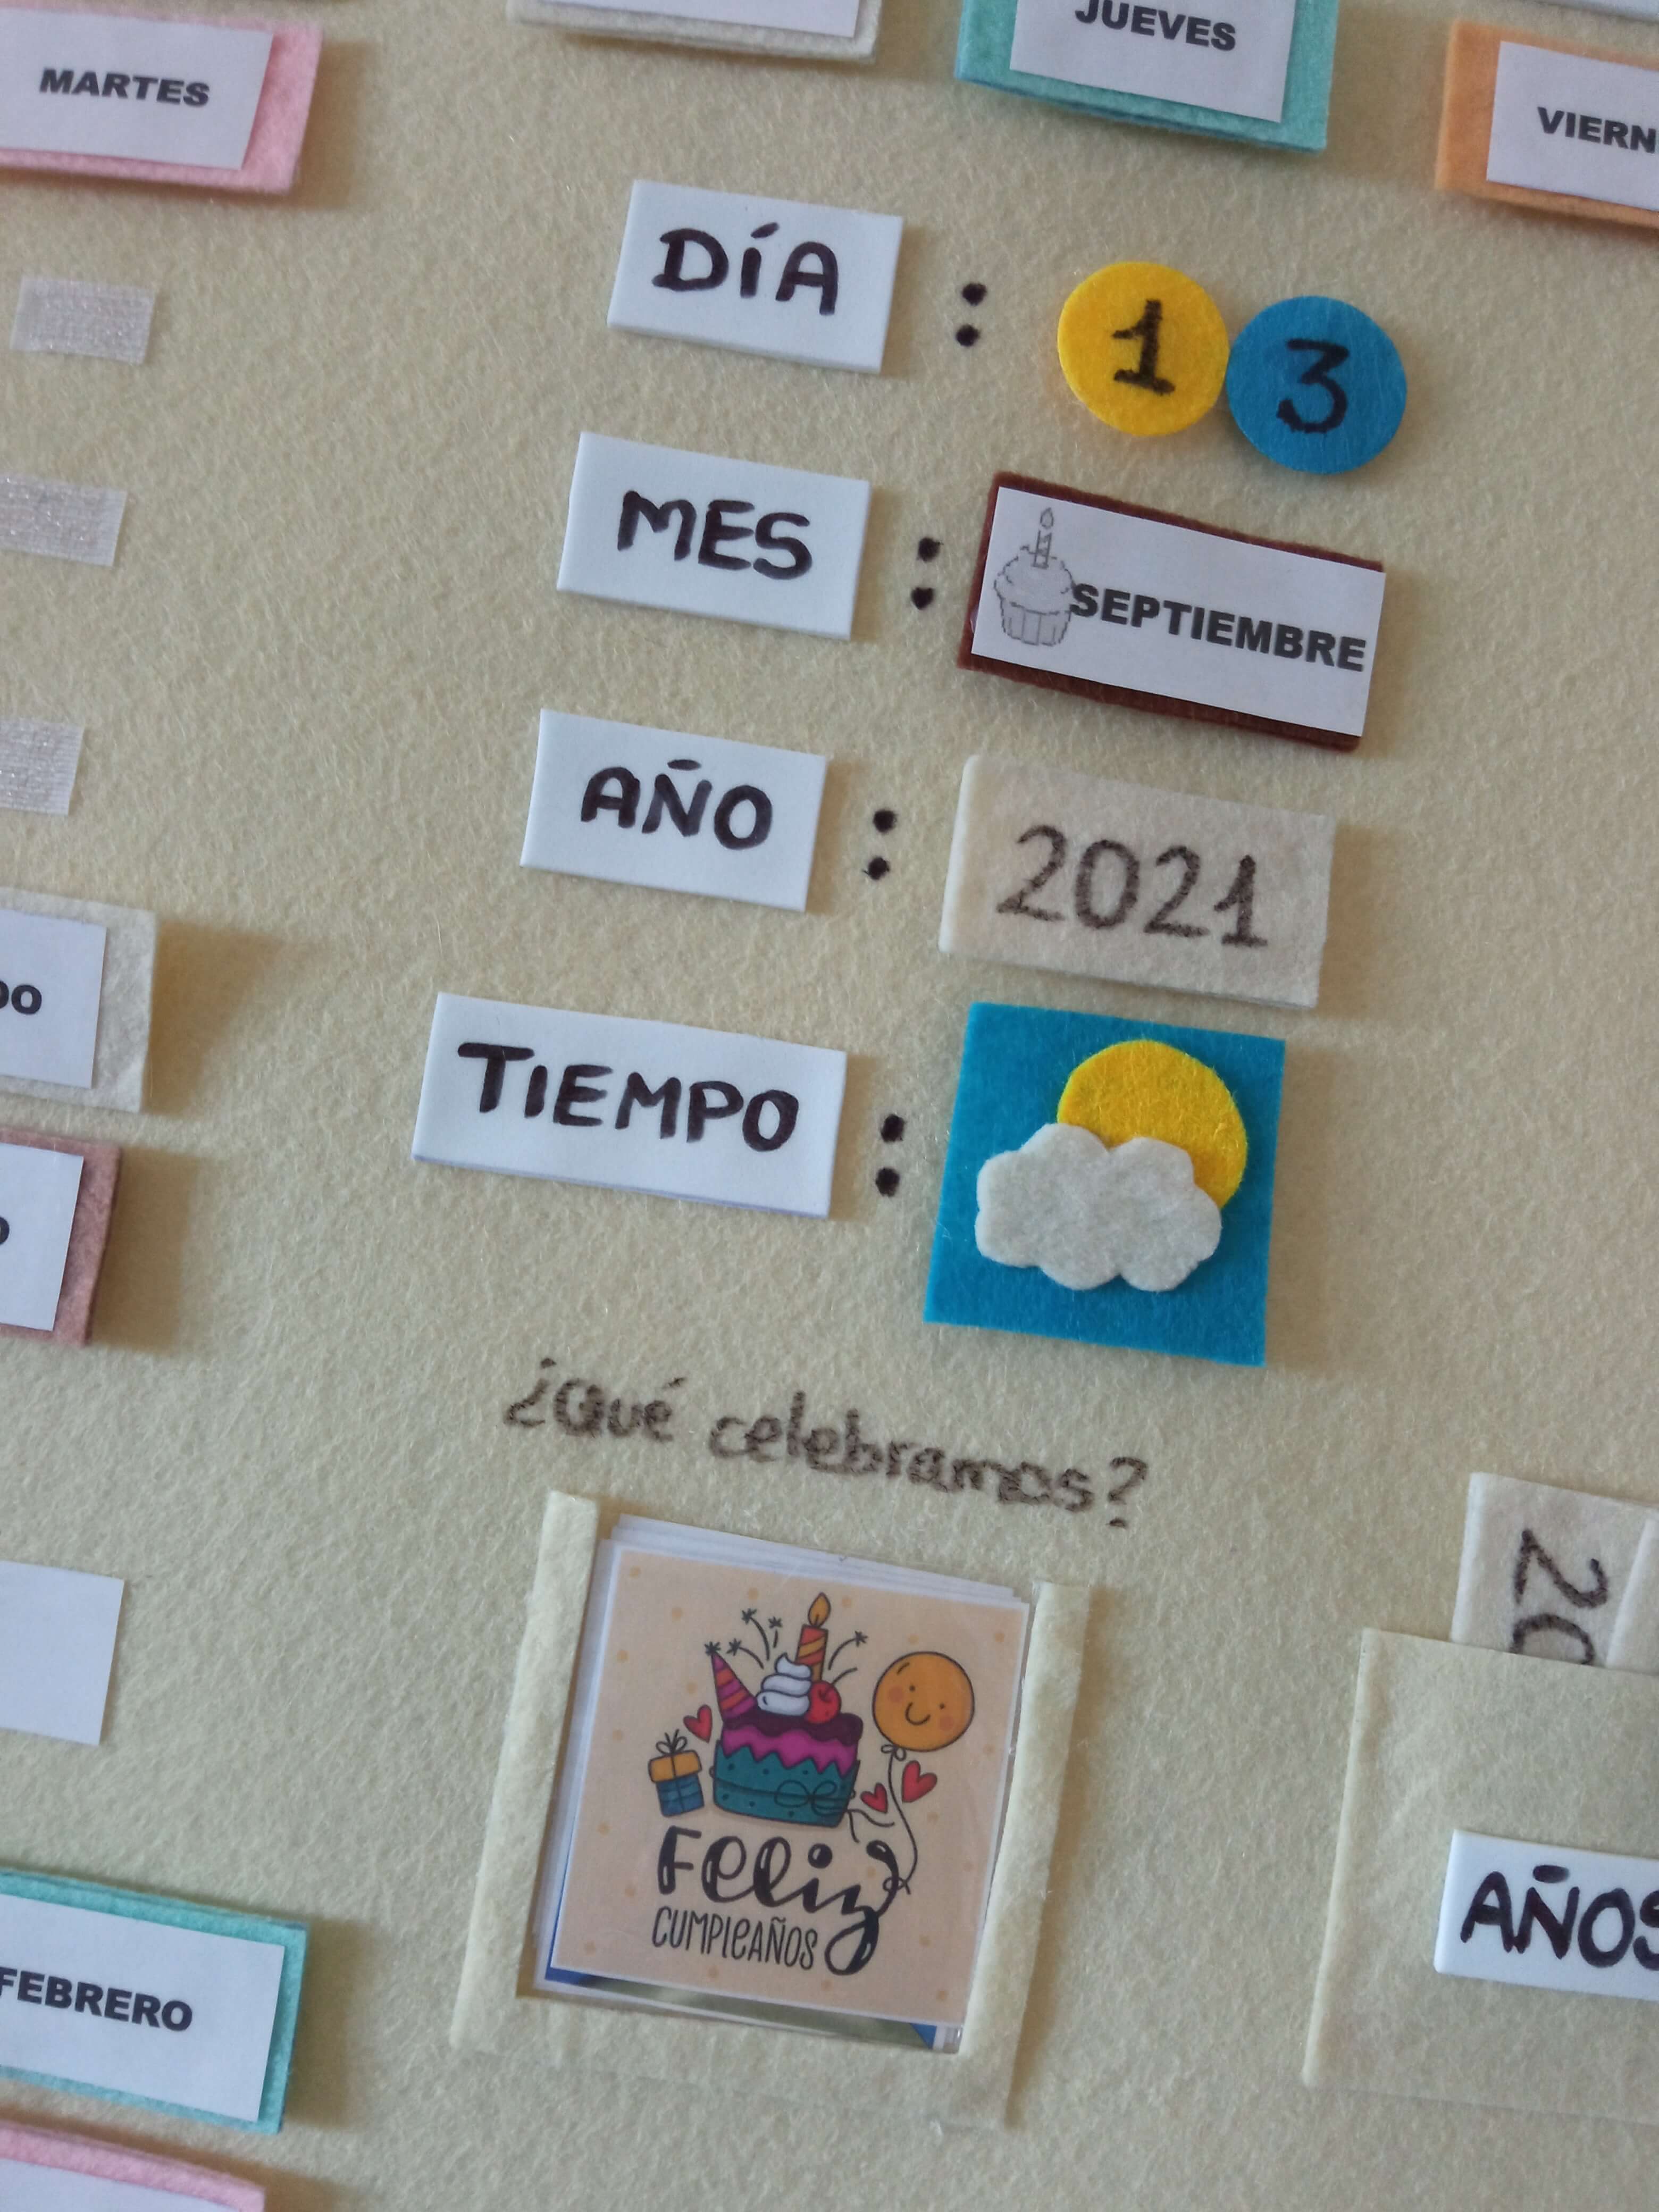 JUEVES
MARTES
DÍA : 13
MES : SEPTIEMBRE
AÑO : 2021
TIEMPO :
¿Qué celebramos?
Feliz
CUMPLEAÑOS
20
AÑOS
FEBRERO